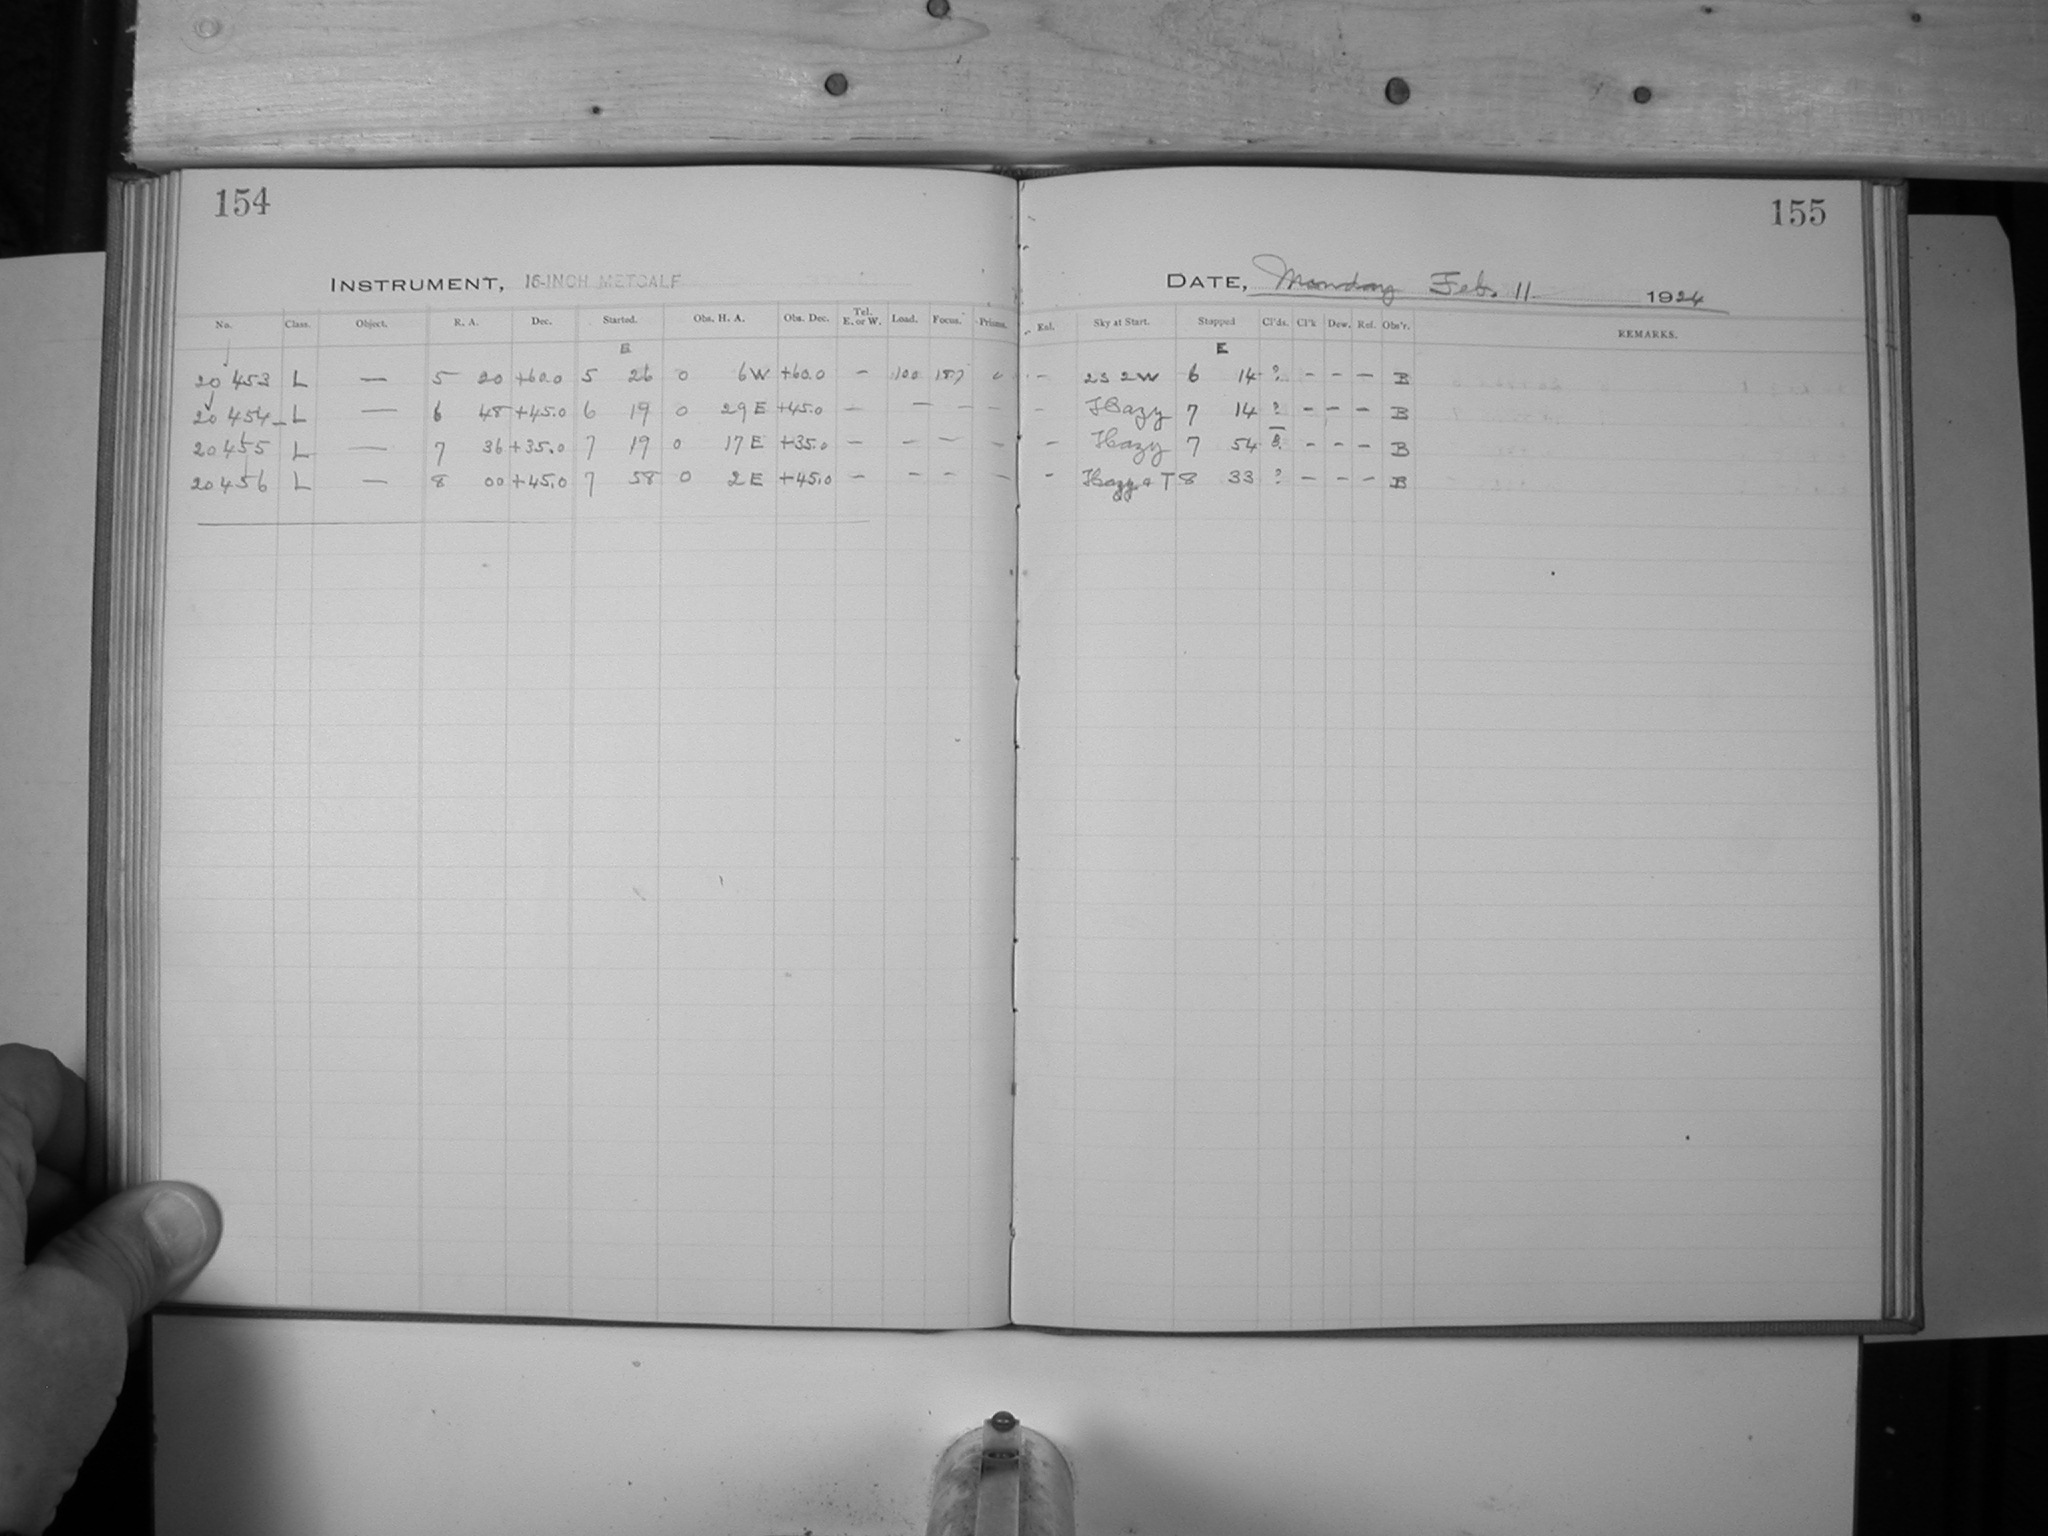 154
INSTRUMENT, 16-INCH METCALF
No. Class. Object. R. A. Dec. Started. Obs. H. A. Obs. Dec. Tel. E. or W. Load. Focus. Prisms.
E
20 453 L — 5 20 +60.0 5 26 0 6 W +60.0 — 100 187
20 454 L — 6 48 +45.0 6 19 0 29 E +45.0 — — — —
20 455 L — 7 36 +35.0 7 19 0 17 E +35.0 — — — —
20 456 L — 8 00 +45.0 7 58 0 2 E +45.0 — — — —
155
DATE, Monday Feb. 11 1924
Sky at Start. Stopped Cl'ds. Cl'k Dew. Ref. Obs'r. REMARKS.
E
— 2S 2W 6 14 ? — — — B
— Hazy 7 14 ? — — — B
— Hazy 7 54 ? — — — B
— Hazy & T 8 33 ? — — — B